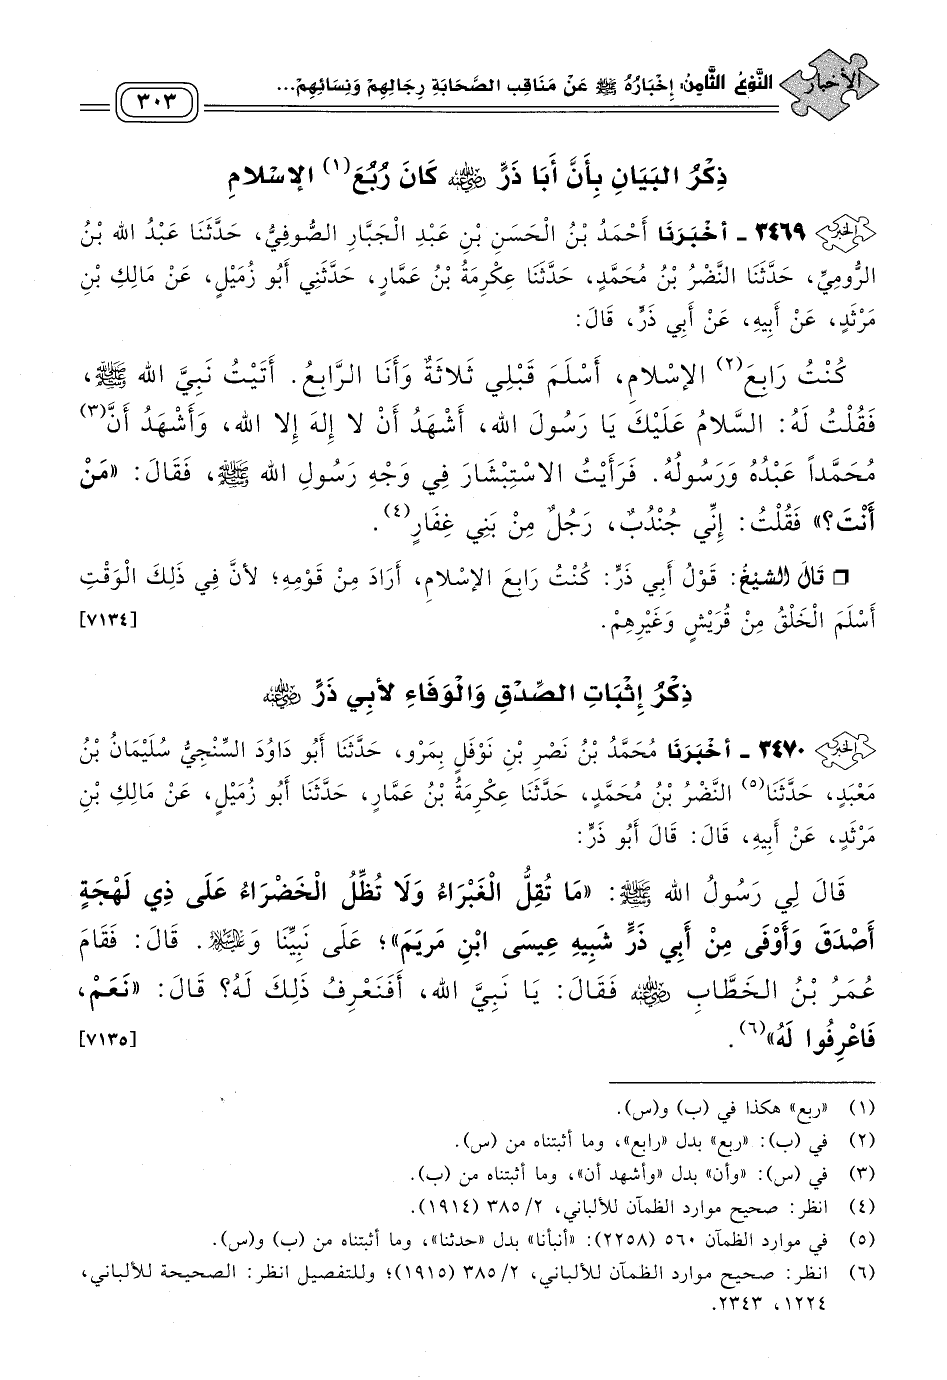 الأخبار
النَّوْعُ الثَّامِنُ: إِخْبَارُهُ ﷺ عَنْ مَنَاقِبِ الصَّحَابَةِ رِجَالِهِمْ وَنِسَائِهِمْ...
٣٠٣
ذِكْرُ البَيَانِ بِأَنَّ أَبَا ذَرٍّ رضي الله عنه كَانَ رُبُعَ(١) الإِسْلامِ
الخبر ٣٤٦٩ - أخْبَرَنَا أَحْمَدُ بْنُ الْحَسَنِ بْنِ عَبْدِ الْجَبَّارِ الصُّوفِيُّ، حَدَّثَنَا عَبْدُ الله بْنُ
الرُّومِيِّ، حَدَّثَنَا النَّضْرُ بْنُ مُحَمَّدٍ، حَدَّثَنَا عِكْرِمَةُ بْنُ عَمَّارٍ، حَدَّثَنِي أَبُو زُمَيْلٍ، عَنْ مَالِكِ بْنِ
مَرْثَدٍ، عَنْ أَبِيهِ، عَنْ أَبِي ذَرٍّ، قَالَ:
كُنْتُ رَابِعَ(٢) الإِسْلامِ، أَسْلَمَ قَبْلِي ثَلاثَةٌ وَأَنَا الرَّابِعُ. أَتَيْتُ نَبِيَّ الله ﷺ،
فَقُلْتُ لَهُ: السَّلامُ عَلَيْكَ يَا رَسُولَ الله، أَشْهَدُ أَنْ لا إِلهَ إِلا الله، وَأَشْهَدُ أَنَّ(٣)
مُحَمَّداً عَبْدُهُ وَرَسُولُهُ. فَرَأَيْتُ الاسْتِبْشَارَ فِي وَجْهِ رَسُولِ الله ﷺ، فَقَالَ: «مَنْ
أَنْتَ؟» فَقُلْتُ: إِنِّي جُنْدُبٌ، رَجُلٌ مِنْ بَنِي غِفَارٍ(٤).
❒ قَالَ الشَّيْخُ: قَوْلُ أَبِي ذَرٍّ: كُنْتُ رَابِعَ الإِسْلامِ، أَرَادَ مِنْ قَوْمِهِ؛ لأنَّ فِي ذَلِكَ الْوَقْتِ
أَسْلَمَ الْخَلْقُ مِنْ قُرَيْشٍ وَغَيْرِهِمْ. [٧١٣٤]
ذِكْرُ إِثْبَاتِ الصِّدْقِ وَالْوَفَاءِ لأبِي ذَرٍّ رضي الله عنه
الخبر ٣٤٧٠ - أخْبَرَنَا مُحَمَّدُ بْنُ نَصْرِ بْنِ نَوْفَلٍ بِمَرْوٍ، حَدَّثَنَا أَبُو دَاوُدَ السِّنْجِيُّ سُلَيْمَانُ بْنُ
مَعْبَدٍ، حَدَّثَنَا(٥) النَّضْرُ بْنُ مُحَمَّدٍ، حَدَّثَنَا عِكْرِمَةُ بْنُ عَمَّارٍ، حَدَّثَنَا أَبُو زُمَيْلٍ، عَنْ مَالِكِ بْنِ
مَرْثَدٍ، عَنْ أَبِيهِ، قَالَ: قَالَ أَبُو ذَرٍّ:
قَالَ لِي رَسُولُ الله ﷺ: «مَا تُقِلُّ الْغَبْرَاءُ وَلَا تُظِلُّ الْخَضْرَاءُ عَلَى ذِي لَهْجَةٍ
أَصْدَقَ وَأَوْفَى مِنْ أَبِي ذَرٍّ شَبِيهِ عِيسَى ابْنِ مَرِيَمَ»؛ عَلَى نَبِيِّنَا وَعليه السلام. قَالَ: فَقَامَ
عُمَرُ بْنُ الخَطَّابِ رضي الله عنه فَقَالَ: يَا نَبِيَّ الله، أَفَنَعْرِفُ ذَلِكَ لَهُ؟ قَالَ: «نَعَمْ،
فَاعْرِفُوا لَهُ»(٦). [٧١٣٥]
(١) «ربع» هكذا في (ب) و(س).
(٢) في (ب): «ربع» بدل «رابع»، وما أثبتناه من (س).
(٣) في (س): «وأن» بدل «وأشهد أن»، وما أثبتناه من (ب).
(٤) انظر: صحيح موارد الظمآن للألباني، ٢/ ٣٨٥ (١٩١٤).
(٥) في موارد الظمآن ٥٦٠ (٢٢٥٨): «أنبأنا» بدل «حدثنا»، وما أثبتناه من (ب) و(س).
(٦) انظر: صحيح موارد الظمآن للألباني، ٢/ ٣٨٥ (١٩١٥)؛ وللتفصيل انظر: الصحيحة للألباني،
١٢٢٤، ٢٣٤٣.